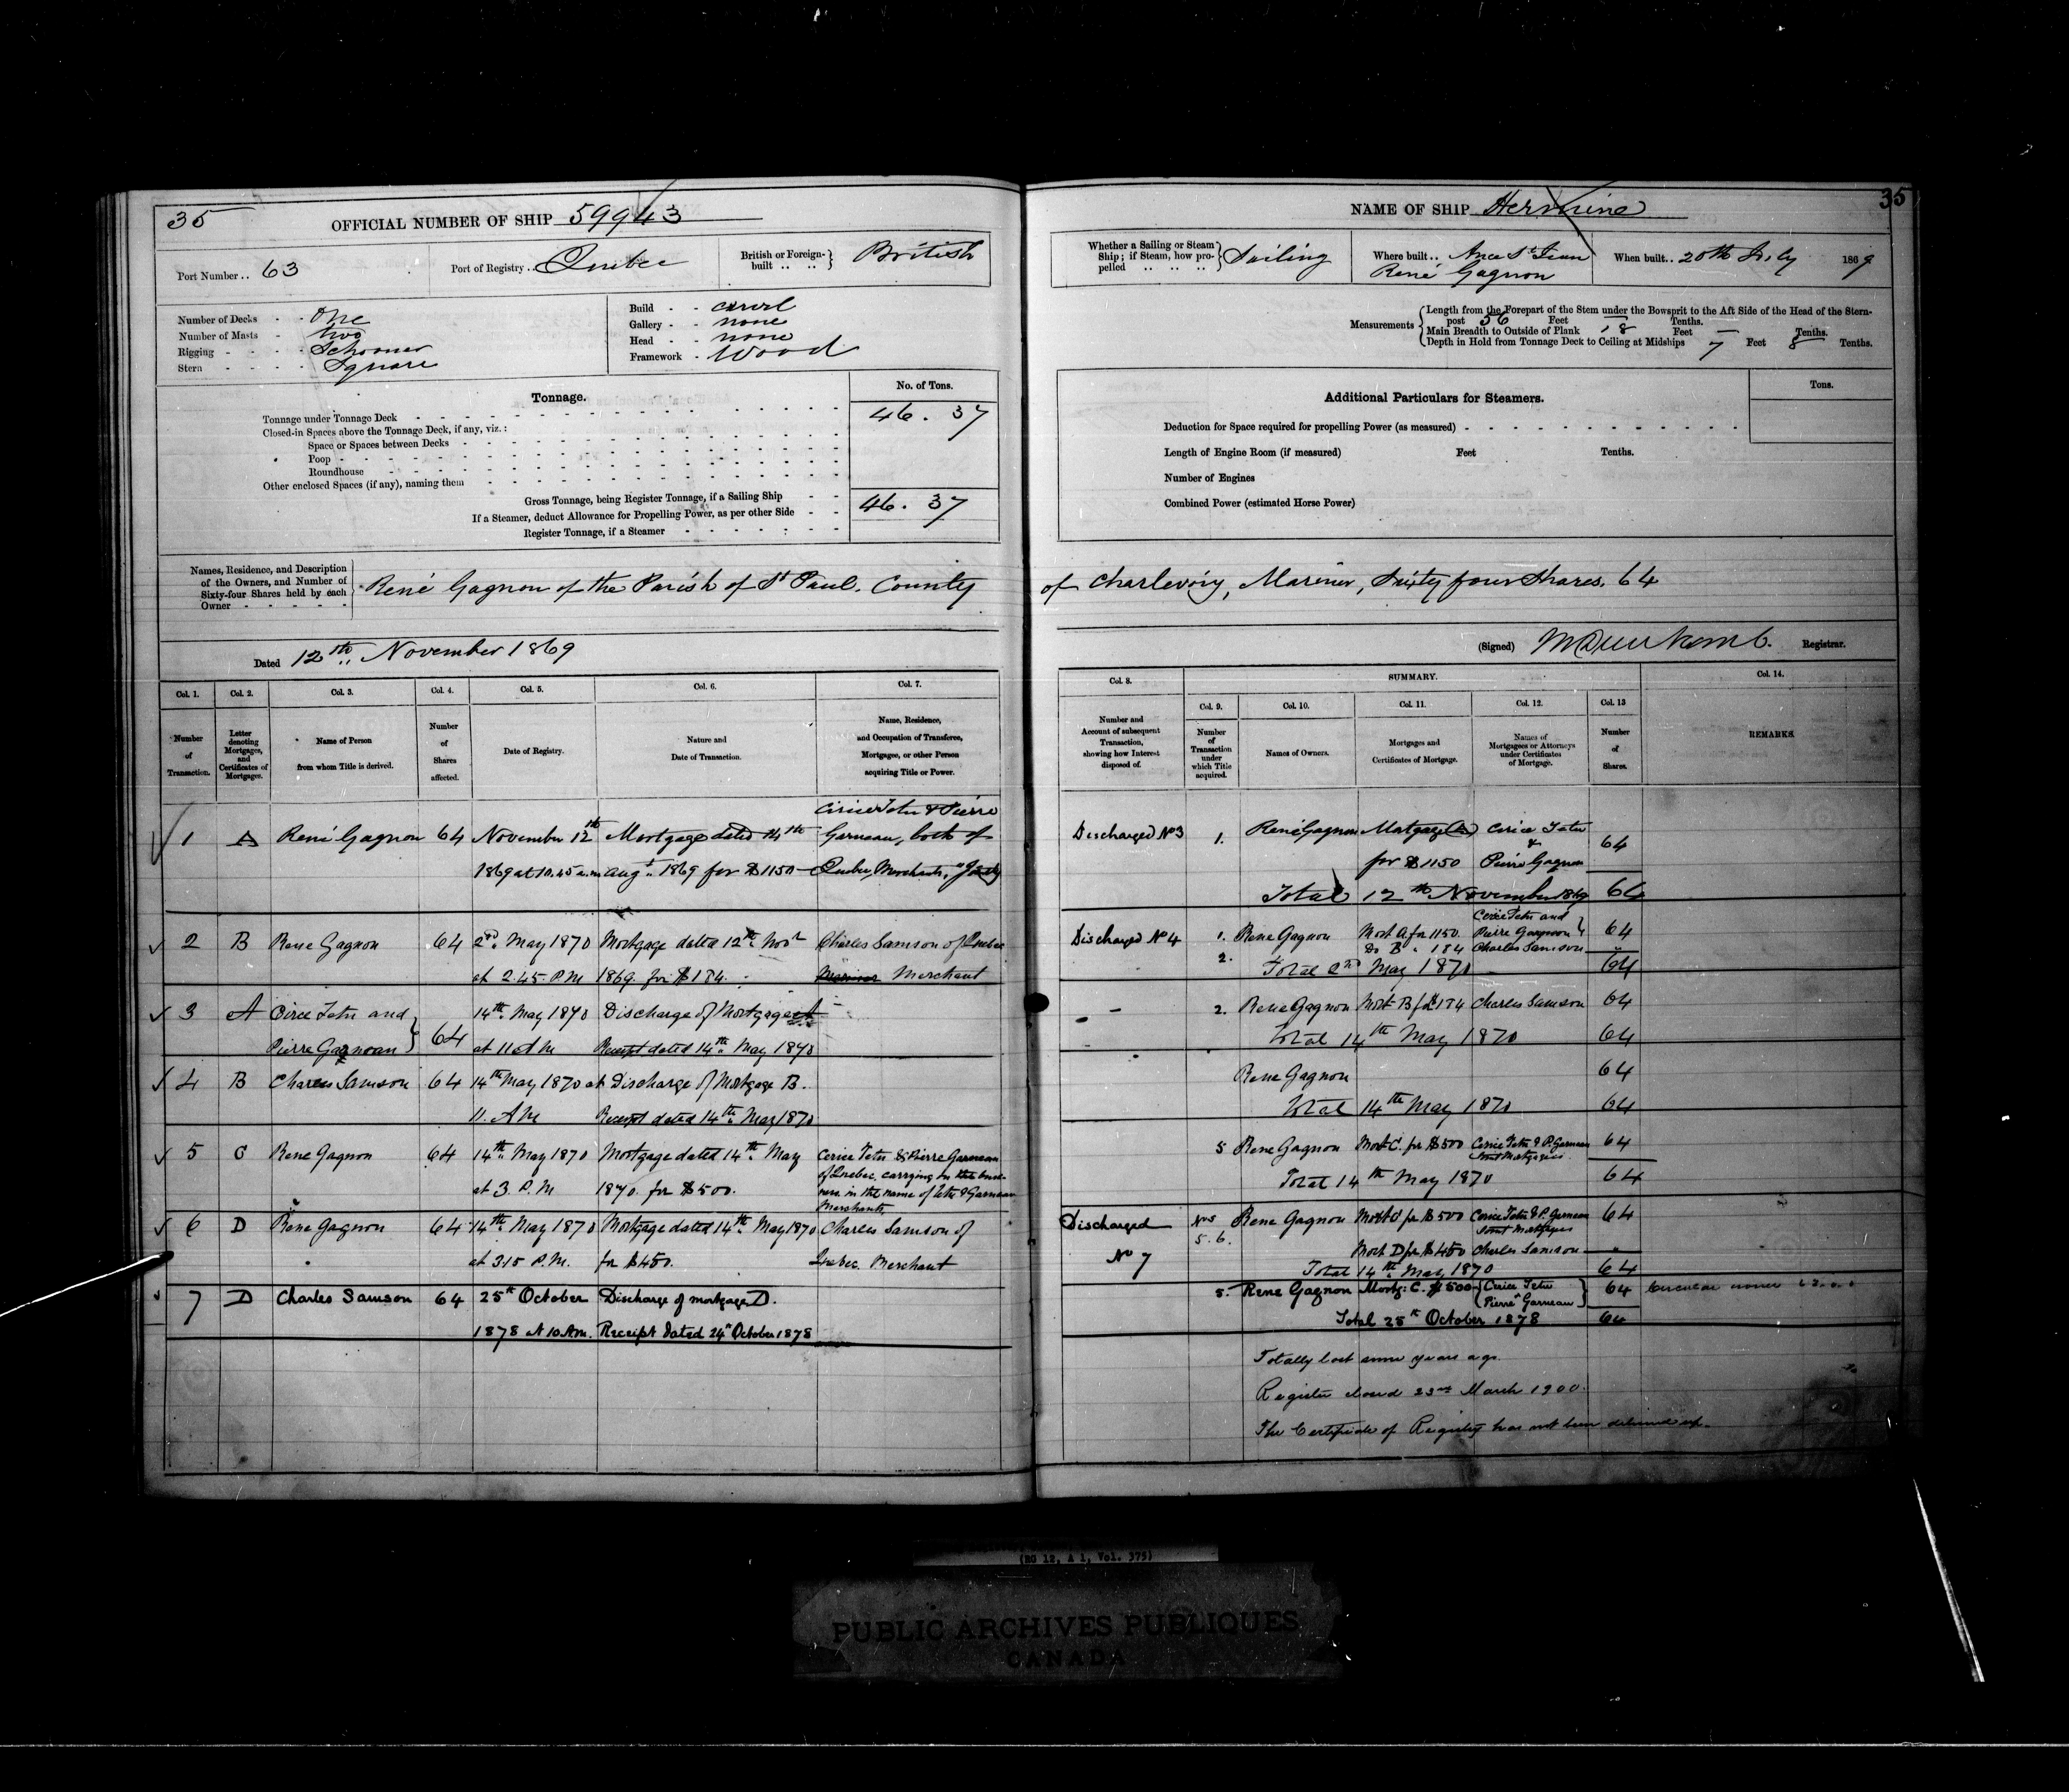 35
OFFICIAL NUMBER OF SHIP 59943
Port Number .. 63
Port of Registry .. Quebec
British or Foreign-built .. .. British
Number of Decks - - One
Number of Masts - two
Rigging - - - - Schooner
Stern - - - - Square
Build - - carvel
Gallery - - none
Head - - none
Framework - Wood
Tonnage.
No. of Tons.
Tonnage under Tonnage Deck 46. 37
Closed-in Spaces above the Tonnage Deck, if any, viz.:
Space or Spaces between Decks
Poop
Roundhouse
Other enclosed Spaces (if any), naming them
Gross Tonnage, being Register Tonnage, if a Sailing Ship 46. 37
If a Steamer, deduct Allowance for Propelling Power, as per other Side
Register Tonnage, if a Steamer
Names, Residence, and Description
of the Owners, and Number of
Sixty-four Shares held by each
Owner
René Gagnon of the Parish of St Paul. County
Dated 12th November 1869
Col. 1. Col. 2. Col. 3. Col. 4. Col. 5. Col. 6. Col. 7.
Number of Transaction.
Letter denoting Mortgages, and Certificates of Mortgages.
Name of Person from whom Title is derived.
Number of Shares affected.
Date of Registry.
Nature and Date of Transaction.
Name, Residence, and Occupation of Transferee, Mortgagee, or other Person acquiring Title or Power.
Cirice Tetu & Pierre
1 A René Gagnon 64 November 12th Mortgage dated 14th Garneau, both of
1869 at 10.45 a.m Augt 1869 for $1150 Quebec, Merchants, Jointly
2 B Rene Gagnon 64 2nd May 1870 Mortgage dated 12th Novr Charles Samson of Quebec
at 2.45. P.M 1869. for $184. Merchant
3 A Cirice Tetu and 14th May 1870 Discharge of Mortgage A
Pierre Garnoau 64 at 11 AM Receipt dated 14th May 1870
4 B Charles Samson 64 14th May 1870 at Discharge of Mortgage B.
11. AM Receipt dated 14th May 1870
5 C Rene Gagnon 64 14th May 1870 Mortgage dated 14th May Cerice Tetu & Pierre Garneau
at 3. P.M 1870. for $500. of Quebec. carrying on the busi-
ness in the name of Tetu & Garneau
Merchants
6 D Rene Gagnon 64 14th May 1870 Mortgage dated 14th May 1870 Charles Samson of
at 3.15 P.M. for $450. Quebec. Merchant
7 D Charles Samson 64 25th October Discharge of mortgage D.
1878 at 10 A.m. Receipt dated 24th October 1878
35
NAME OF SHIP Hermine
Whether a Sailing or Steam Ship; if Steam, how propelled .. .. .. Sailing
Where built .. Anse St Jean
René Gagnon
When built .. 20th July 1869
Measurements
Length from the Forepart of the Stem under the Bowsprit to the Aft Side of the Head of the Stern-
post 56 Feet — Tenths.
Main Breadth to Outside of Plank 18 Feet — Tenths.
Depth in Hold from Tonnage Deck to Ceiling at Midships 7 Feet 8 Tenths.
Additional Particulars for Steamers.
Tons.
Deduction for Space required for propelling Power (as measured)
Length of Engine Room (if measured) Feet Tenths.
Number of Engines
Combined Power (estimated Horse Power)
of Charlevoix, Mariner, Sixty four Shares. 64
(Signed) Registrar.
Col. 8. SUMMARY. Col. 14.
Col. 9. Col. 10. Col. 11. Col. 12. Col. 13
Number and Account of subsequent Transaction, showing how Interest disposed of.
Number of Transaction under which Title acquired.
Names of Owners.
Mortgages and Certificates of Mortgage.
Names of Mortgagees or Attorneys under Certificates of Mortgage.
Number of Shares.
REMARKS.
Discharged No 3 1. René Gagnon Mortgage (A) Cerice Tetu
&
for $1150 Pierre Gagnon 64
Total 12th November 1869 64
Cerice Tetu and
Discharged No 4 1. Rene Gagnon Mort A for 1150. Pierre Gagnon 64
2. Do B " 184 Charles Samson "
Total 2nd May 1870 64
2. Rene Gagnon Mort B for $184 Charles Samson 64
Total 14th May 1870 64
Rene Gagnon 64
Total 14th May 1870 64
5 Rene Gagnon Mort C. for $500 Cerice Tetu & P. Garneau 64
Joint Mortgagees
Total 14th May 1870 64
Discharged Nos Rene Gagnon Mort C for $500 Cerice Tetu & P. Garneau 64
5. 6. Joint Mortgagees
No 7 Mort D for $450 Charles Samson "
Total 14th May 1870 64
5. Rene Gagnon Mortg: C. $500 Cerice Tetu 64
Pierre Garneau
Total 25th October 1878 64
Totally lost some years ago.
Register closed 23rd March 1900.
The Certificate of Registry has not been delivered up.
(RG 12, A 1, Vol. 375)
PUBLIC ARCHIVES PUBLIQUES
CANADA